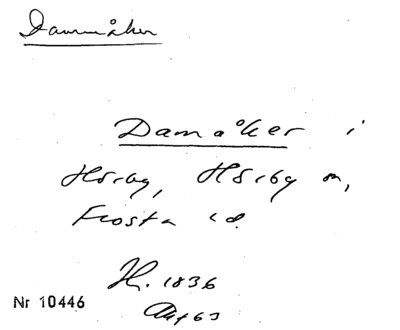 Dammåker
Damåker i
Hörby, Hörby sn,
Frosta hd.
H. 1836
Nr 10446